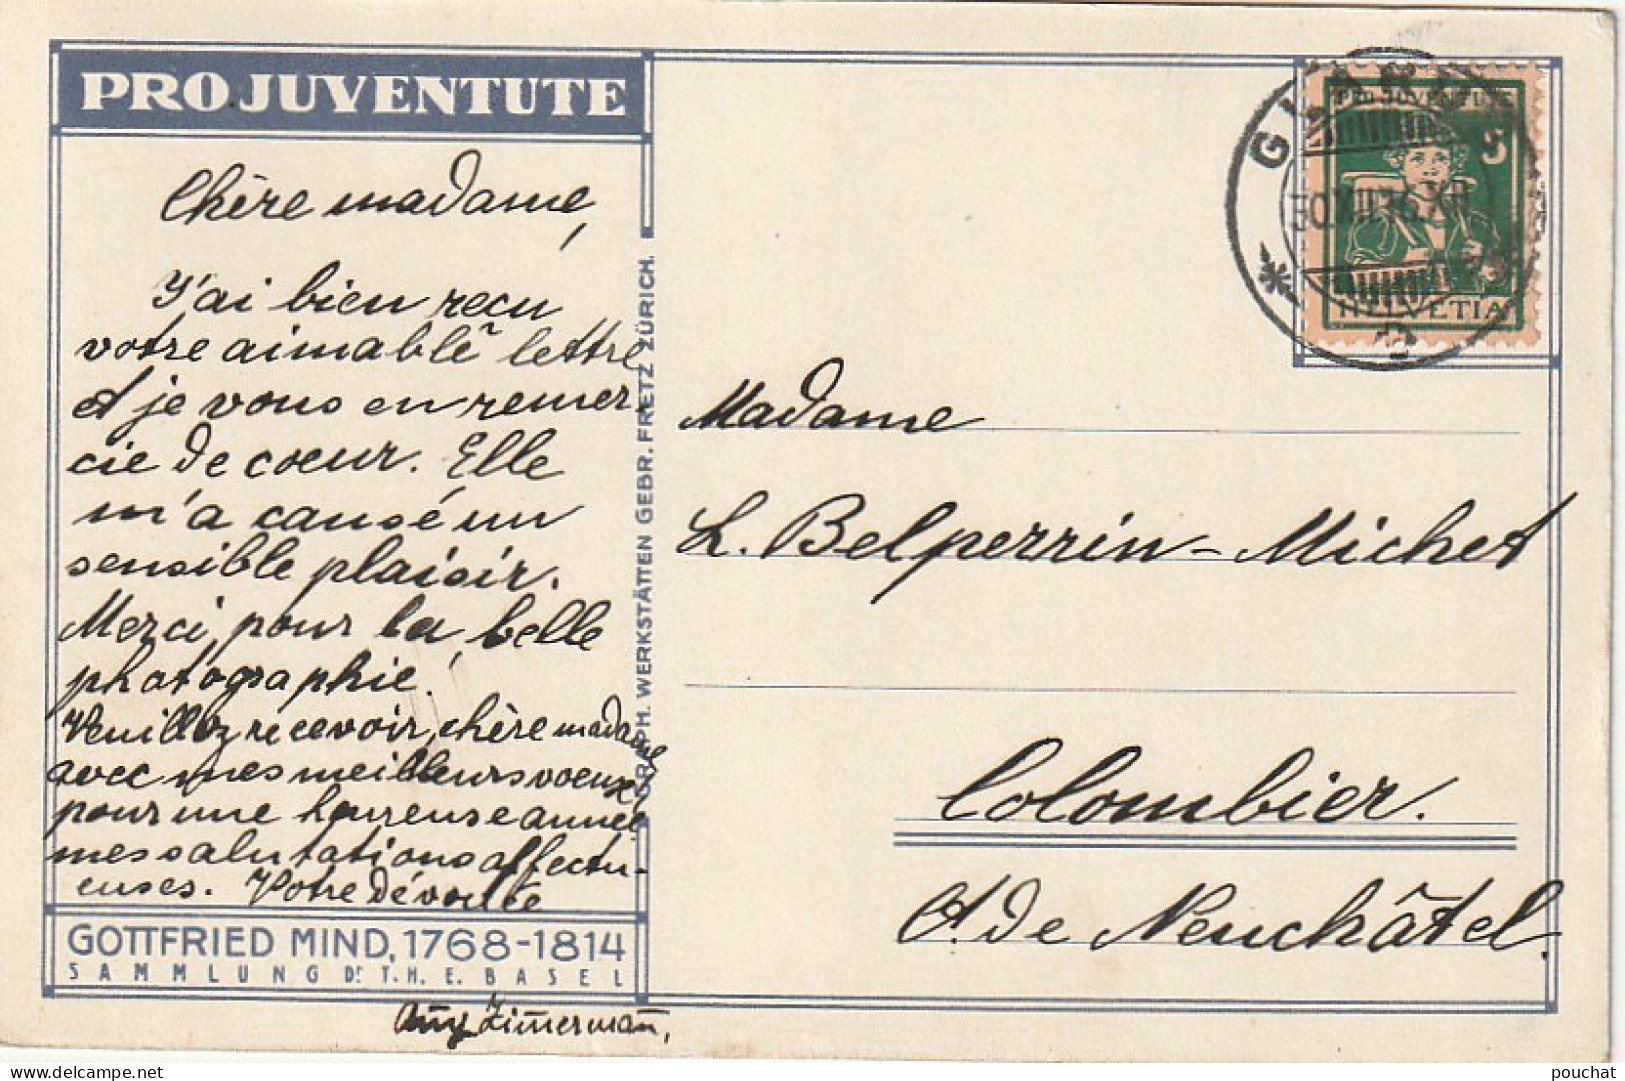 PRO JUVENTUTE
Chère madame,
J'ai bien reçu
votre aimable lettre
et je vous en remer-
cie de coeur. Elle
m'a causé un
sensible plaisir.
Merci pour la belle
photographie!
Veuillez recevoir, chère madame
avec mes meilleurs voeux
pour une heureuse année
mes salutations affectu-
euses. Votre Dévouée
GOTTFRIED MIND, 1768-1814
SAMMLUNG Dr. T. H. E. BASEL
Zimmermann,
GRAPH. WERKSTÄTTEN GEBR. FRETZ ZÜRICH.
PRO JUVENTUTE
5
HELVETIA
Madame
L. Belperrin-Michet
Colombier.
Ct. de Neuchâtel.
pouchat